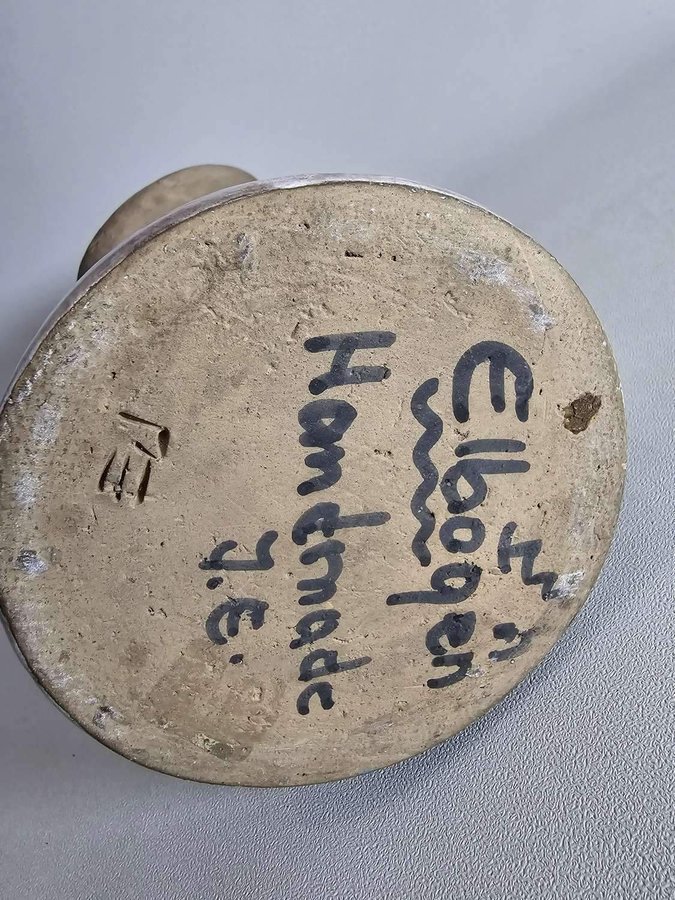 Elbogen
Handmade
J.E.